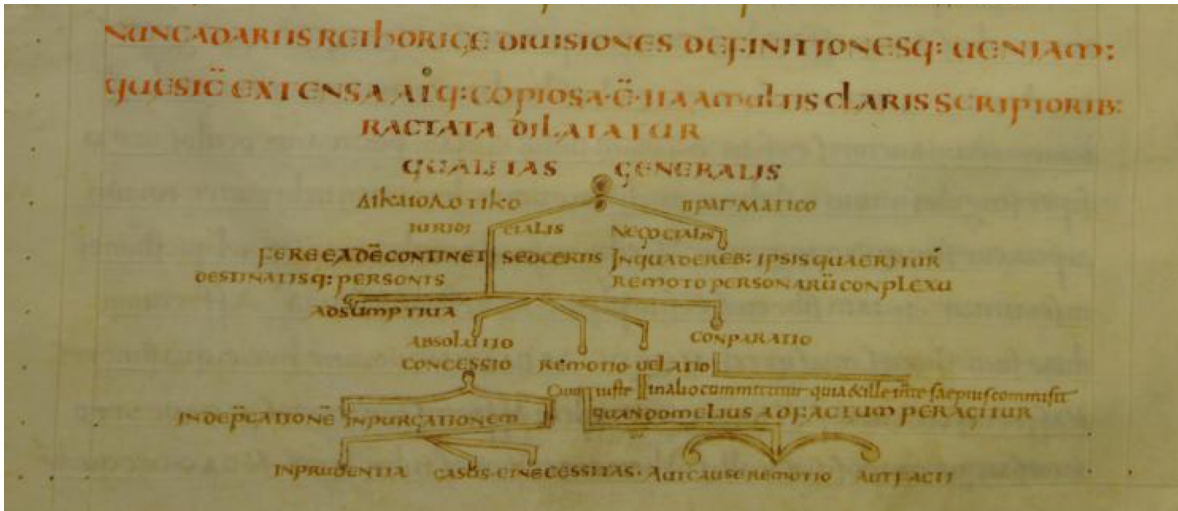 NUNCADARTISRETHORICE DIUISIONES DEFINITIONESQ: UENIAM;
QUESIC̄ EXTENSA ATQ: COPIOSA·Ē·ITAAMULTIS CLARIS SCRIPTORIB:
RACTATA DILATATUR
QUALITAS GENERALIS
ΔΙΚΑΙΟΛΟΤΙΚΟ ΠΡΑΓΜΑΤΙCΟ
IURIDI CIALIS NEGOCIALIS
FEREEADĒCONTINET SEDCERTIS INQUADEREB: IPSISQUAERITUR
DESTINATISQ: PERSONIS REMOTO PERSONARŪ CONPLEXU
ADSUMPTIUA
ABSOLUTIO CONPARATIO
CONCESSIO REMOTIO UELATIO
Cum iuste inaliocommittitur quia&ille inte saepiuscommisit
INDEP̄CATIONĒ INPURGATIONEM QUANDOMELIUS ADFACTUM PERAGITUR
INPRUDENTIA CASUS·ETNECESSITAS· AUTCAUSEREMOTIO AUTFACTI